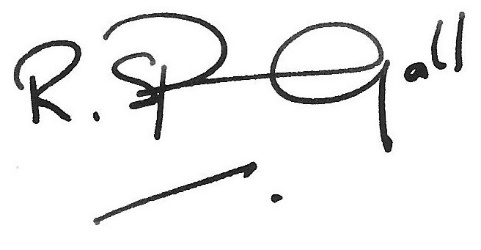 R. SP Gall